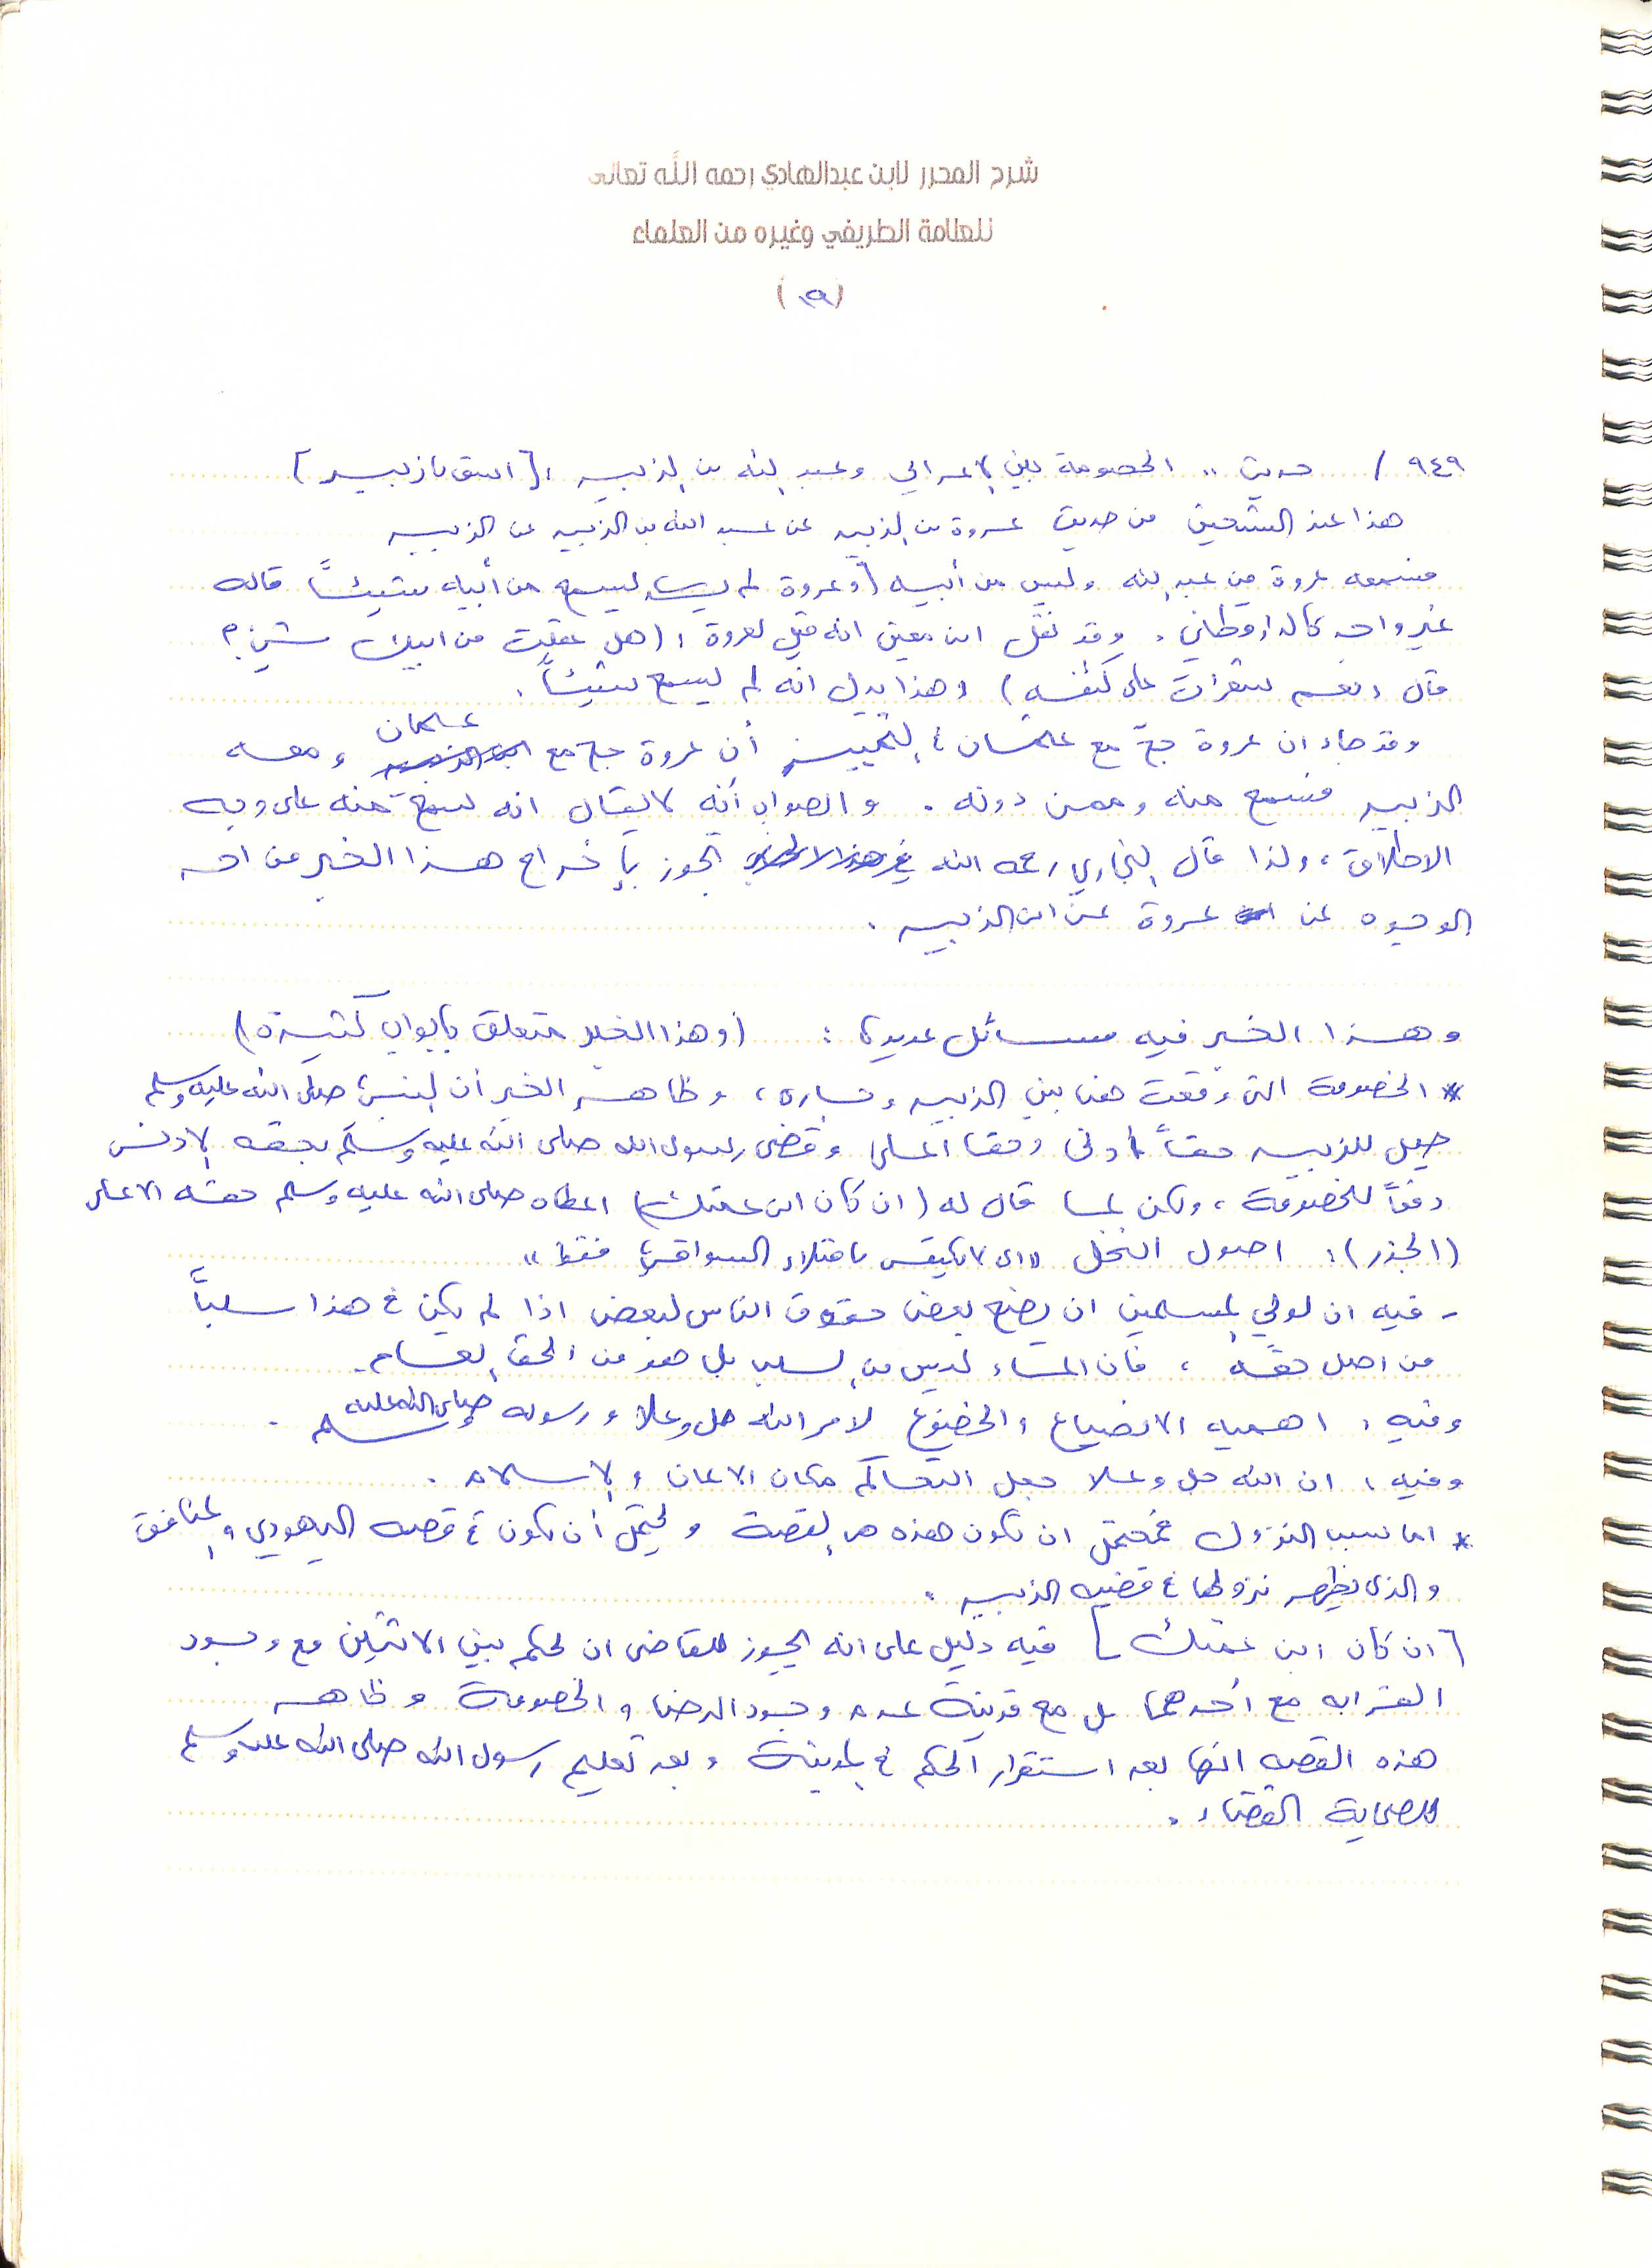 شرح المحرر لابن عبدالهادي رحمه الله تعالى
للعلامة الطريفي وغيره من العلماء
(١٩)
٩٤٩ / حديث .. الخصومة بين الاعرابي وعبد الله بن الزبير : [اسق يا زبير]
هذا عند الشيخين من حديث عروة بن الزبير عن عبد الله بن الزبير عن الزبير
فسمعه عروة من عبد الله وليس من أبيه (وعروة لم يسمع من أبيه شيئاً قاله
غير واحد كالدارقطني . وقد نقل ابن معين انه قيل لعروة : (هل عقلت من ابيك شيئ ؟
قال : نعم شعرات على كتفيه) وهذا يدل انه لم يسمع شيئاً .
وقد جاء ان عروة حج مع عثمان في التمييز أن عروة حج مع عثمان ومعه
الزبير فسمع منه وممن دونه . والصواب أنه لا يقال انه لم يسمع منه على وجه
الاطلاق ، ولذا قال البخاري رحمه الله تجوز بإخراج هذا الخبر من احد
الوجوه عن عروة عن ابن الزبير .
وهذا الخبر فيه مسائل عديدة : (وهذا الخبر متعلق بأبواب كثيرة)
* الخصومة التي وقعت هنا بين الزبير وجاره ، وظاهر الخبر أن النبي صلى الله عليه وسلم
جعل للزبير حقاً أدنى وحقا اعلى وقضى رسول الله صلى الله عليه وسلم بحقه الادنى
دفعاً للخصومة ، ولكن لما قال له (ان كان ابن عمتك) اعطاه صلى الله عليه وسلم حقه الاعلى
(الجذر) : اصول النخل "اي لا يكتفى بامتلاء السواقي فقط"
- فيه ان لولي المسلمين ان يضع بعض حقوق الناس لبعض اذا لم يكن في هذا سلباً
من اصل حقه ، فان الماء ليس من السلب بل هو من الحق العام .
وفيه : اهميه الانصياع والخضوع لامر الله جل وعلا ورسوله صلى الله عليه وسلم .
وفيه : ان الله جل وعلا جعل التحاكم مكان الايمان والاسلام .
* اما سبب النزول فمحتمل ان تكون هذه هي القصة ويحتمل أن تكون في قصه اليهودي والمنافق
والذي يظهر نزولها في قضيه الزبير .
[ان كان ابن عمتك] فيه دليل على انه يجوز للقاضي ان يحكم بين الاثنين مع وجود
القرابه مع أحدهما بل مع قرينة عدم وجود الرضا والخصومة وظاهر
هذه القصه انها بعد استقرار الحكم في المدينة وبعد تعليم رسول الله صلى الله عليه وسلم
للصحابة القضاء .